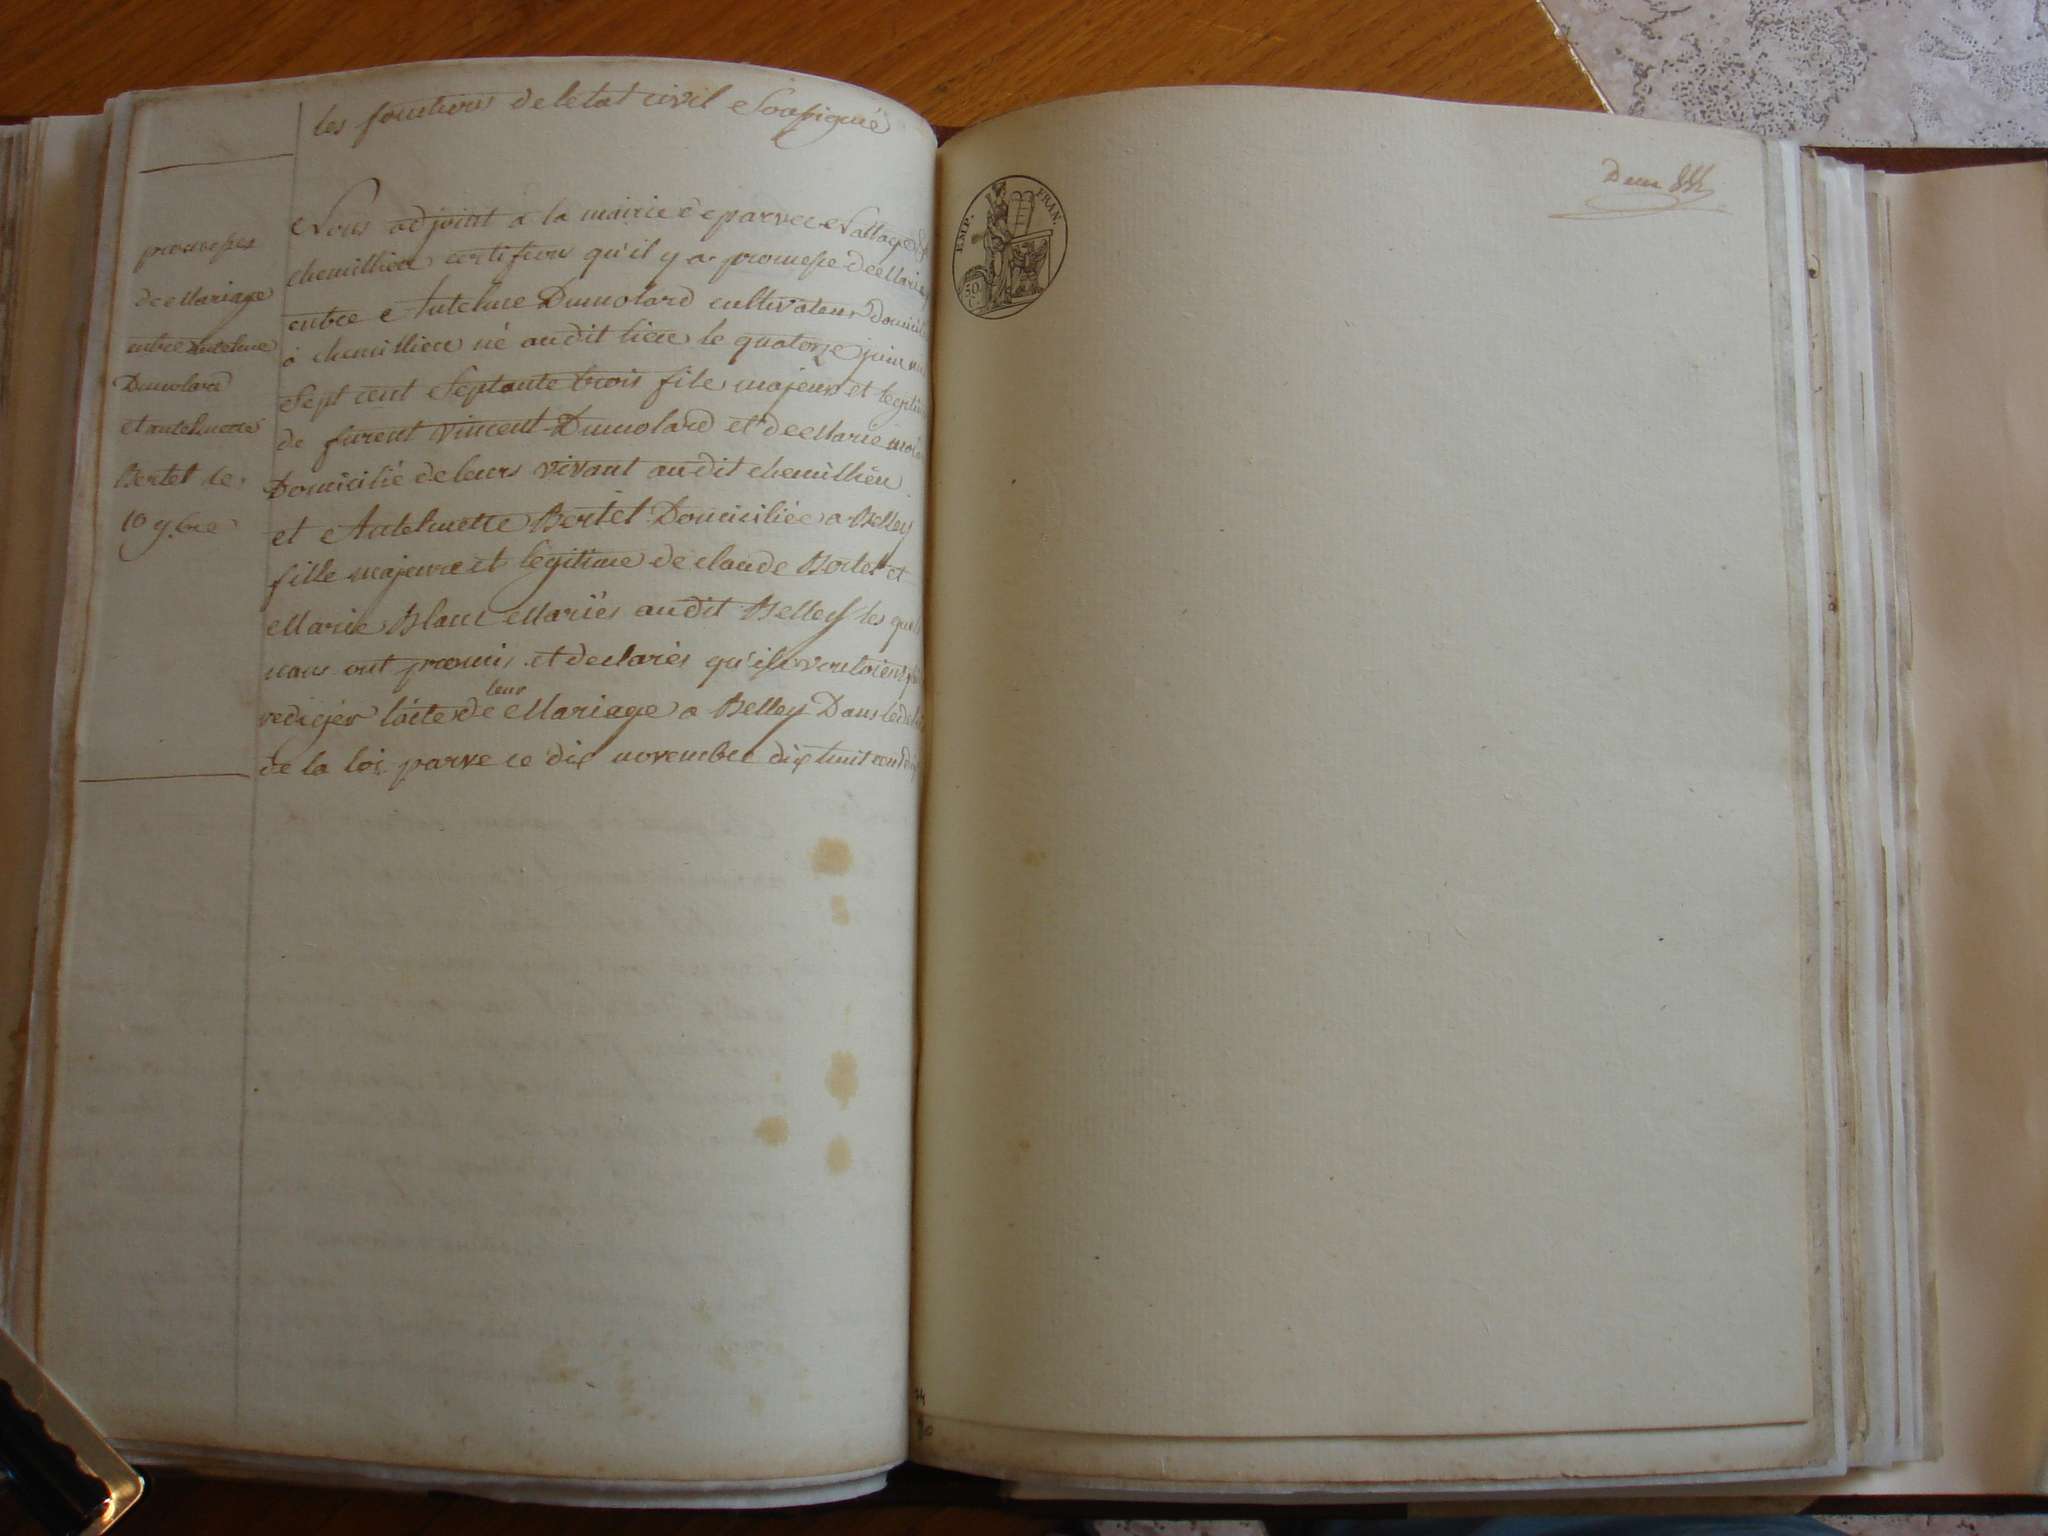 les fonctions de letat civil Soussigné
promesses
de Mariage
entre Antelme
Dumolard
et antelmette
Bertet le
10 9.bre
Nous adjoint a la mairie de parve Nattage &
chemillieu certifions qu'il y a promesse de Mariage
entre Antelme Dumolard cultivateur Domicilié
à chemillieu né audit lieu le quatorze juin mil
Sept cent Septante trois fils majeur et legitime
de furent vincent Dumolard et de Marie
Domicilié de leurs vivant audit chemillieu
et Antelmette Bertet Domiciliée a Belley
fille majeure et legitime de claude Bertet et
Marie Blanc Mariés audit Belley les quels
nous ont promis et declarés qu'ils vouloient
leur
rediger lacte de Mariage a Belley Dans le
de la loi parve ce dix novembre dix huit cent dix
EMP. FRAN.
50. C.
Deux
24